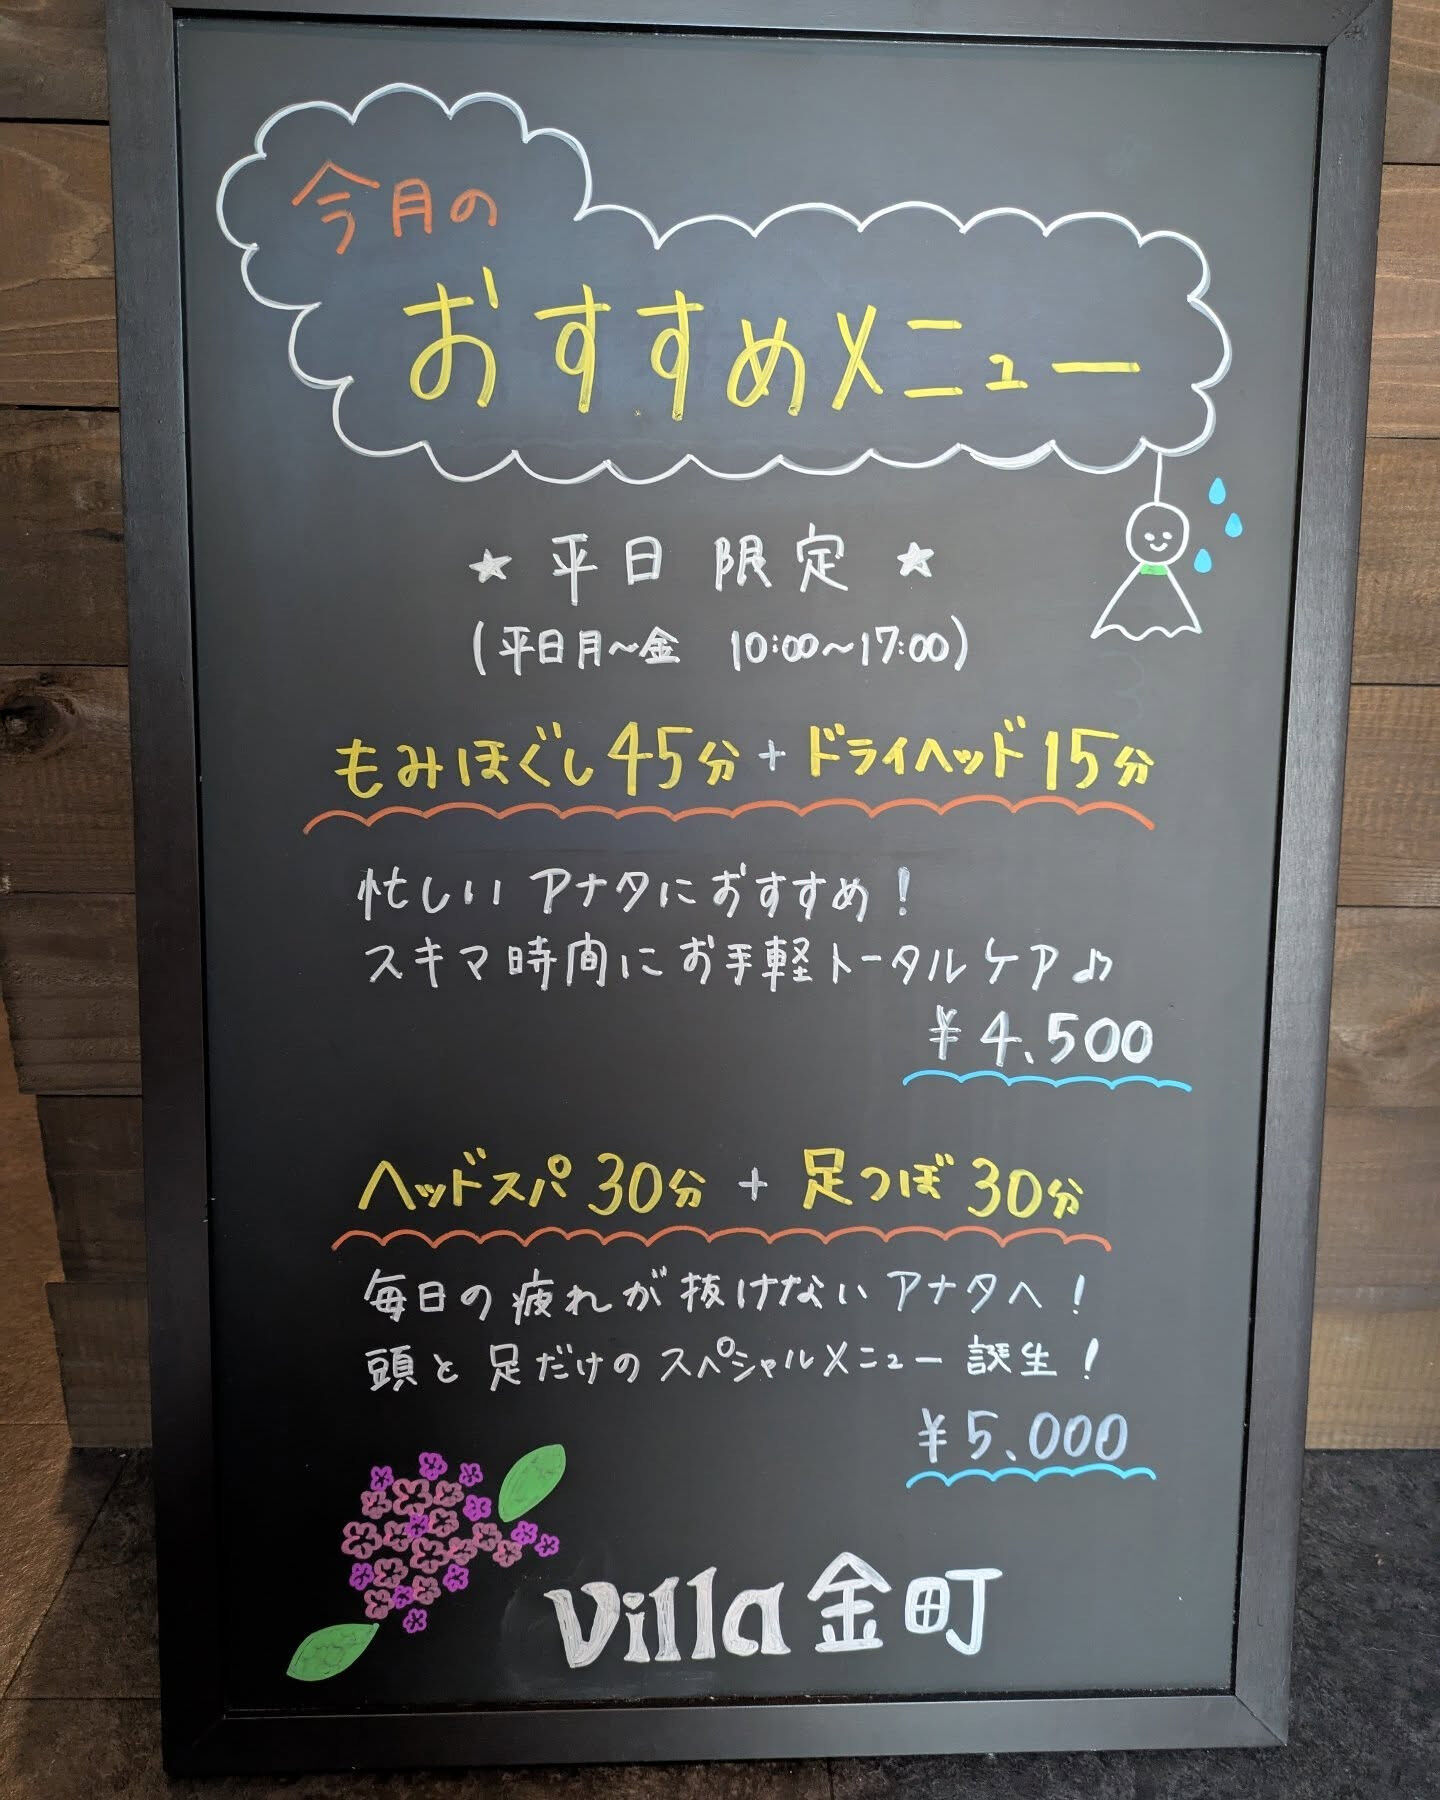 今月の
おすすめメニュー
★ 平日限定 ★
(平日月～金　10:00～17:00)
もみほぐし45分 + ドライヘッド15分
忙しいアナタにおすすめ！
スキマ時間にお手軽トータルケア♫
¥4,500
ヘッドスパ30分 + 足つぼ30分
毎日の疲れが抜けないアナタへ！
頭と足だけのスペシャルメニュー誕生！
¥5,000
Villa金町